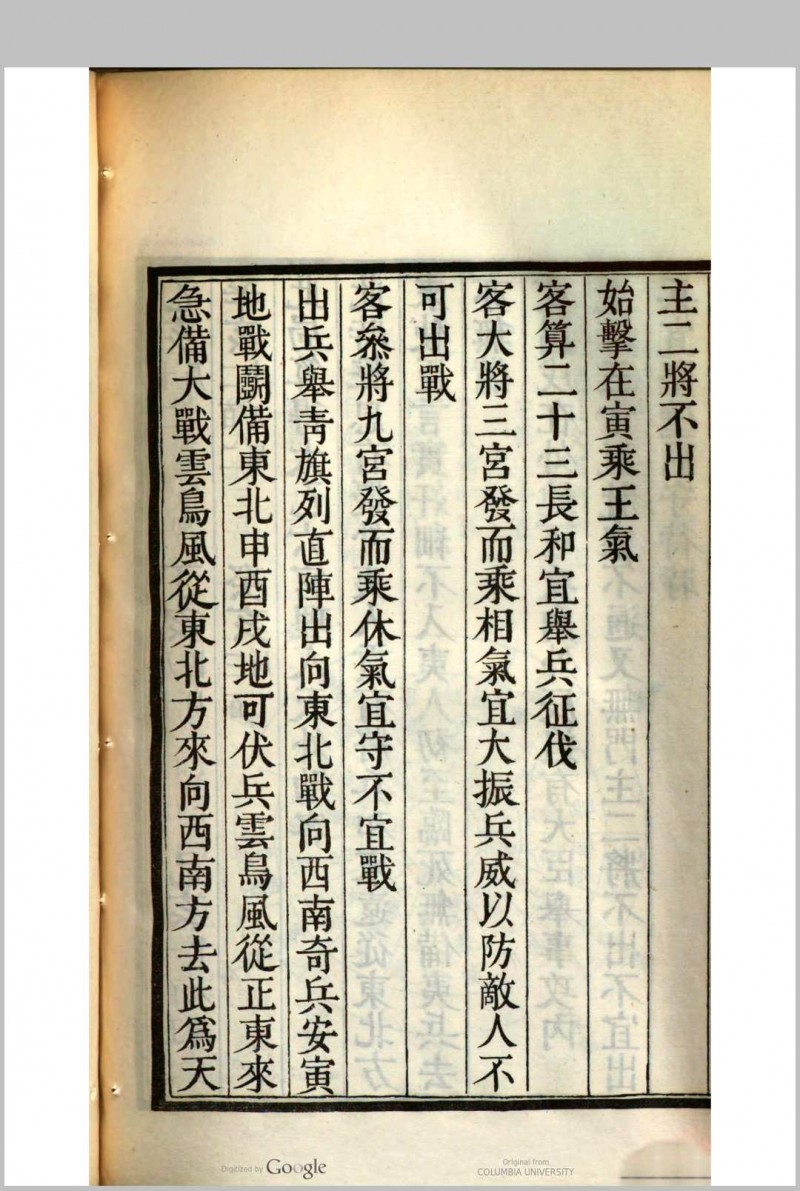 主二將不出
始擊在寅乘王氣
客算二十三長和宜舉兵征伐
客大將三宮發而乘相氣宜大振兵威以防敵人不
可出戰
客叅將九宮發而乘休氣宜守不宜戰
出兵舉靑旗列直陣出向東北戰向西南奇兵安寅
地戰鬭備東北申酉戌地可伏兵雲鳥風從正東來
急備大戰雲鳥風從東北方來向西南方去此爲天
Digitized by Google
Original from
COLUMBIA UNIVERSITY